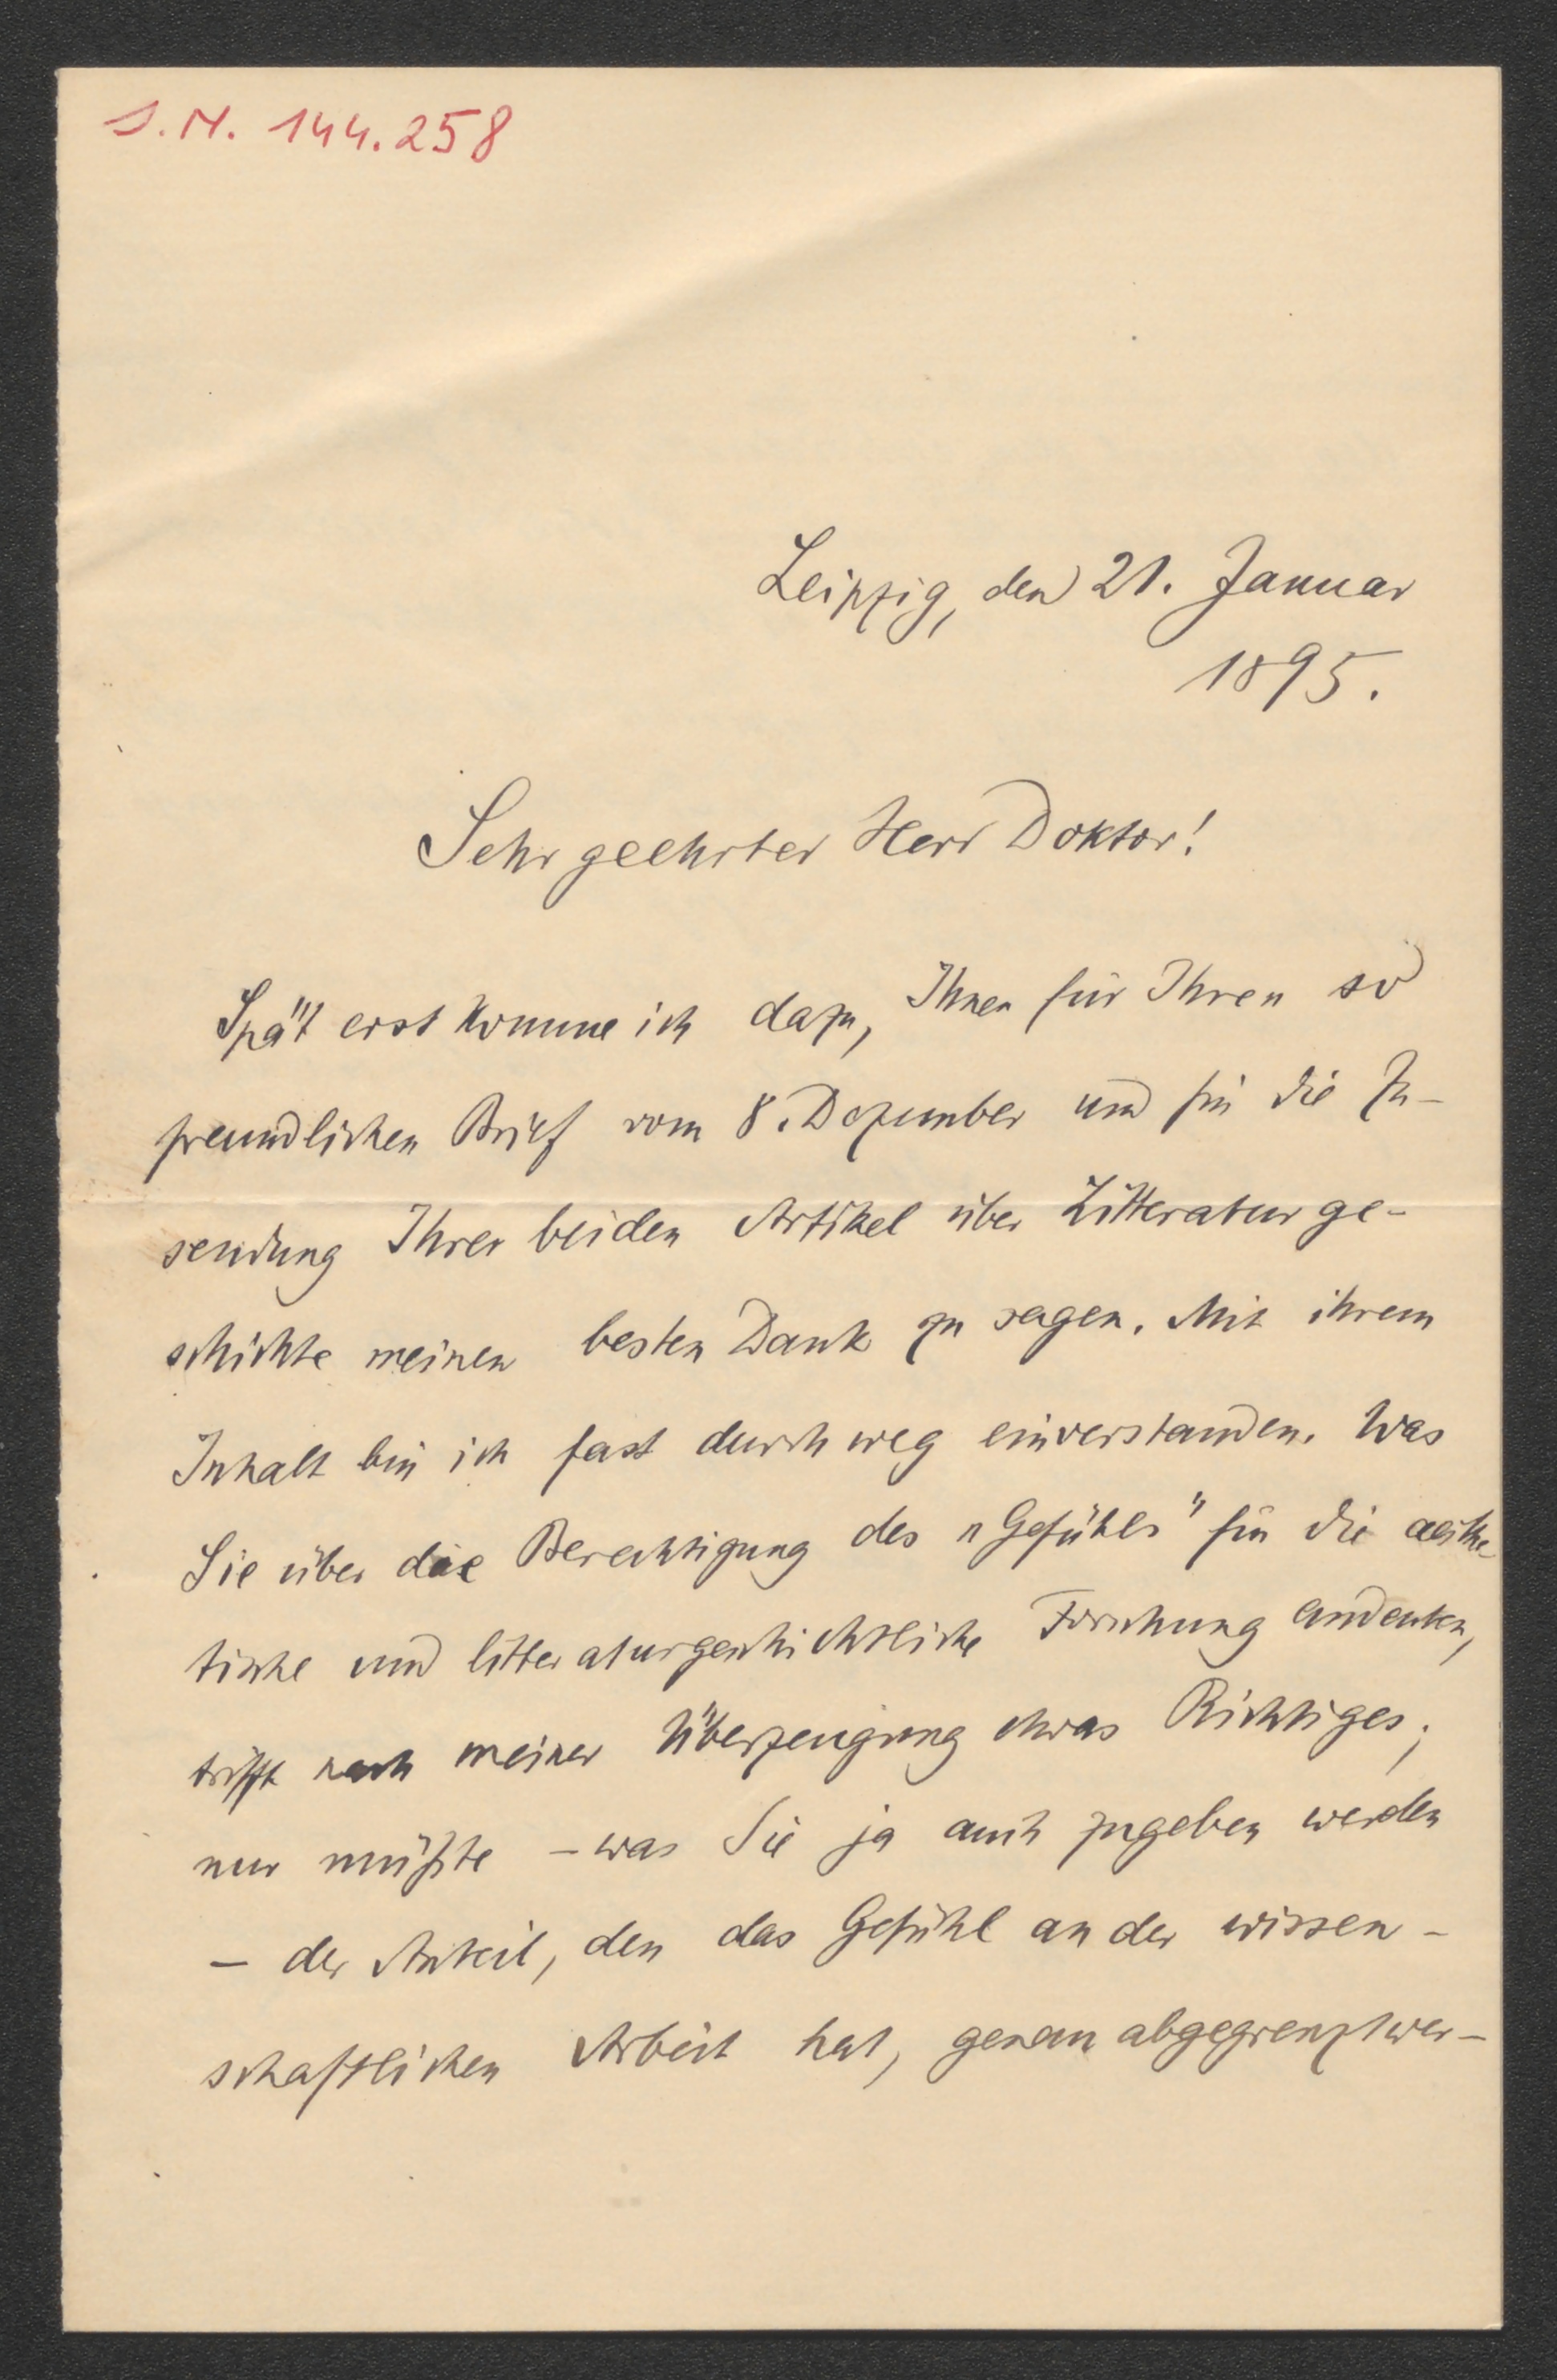 J.N. 144.258
Leipzig, den 21. Januar
1895.
Sehr geehrter Herr Doktor!
Spät erst komme ich dazu, Ihnen für Ihren so
freundlichen Brief vom 8. Dezember und für die Zu-
sendung Ihrer beiden Artikel über Litteraturge-
schichte meinen besten Dank zu sagen. Mit ihrem
Inhalt bin ich fast durchweg einverstanden. Was
Sie über die Berechtigung des „Gefühls" für die aesthe-
tische und litteraturgeschichtliche Forschung andeuten,
trifft nach meiner Überzeugung etwas Richtiges;
nur müßte – was Sie ja auch zugeben werden
– der Anteil, den das Gefühl an der wissen-
schaftlichen Arbeit hat, genau abgegrenzt wer-